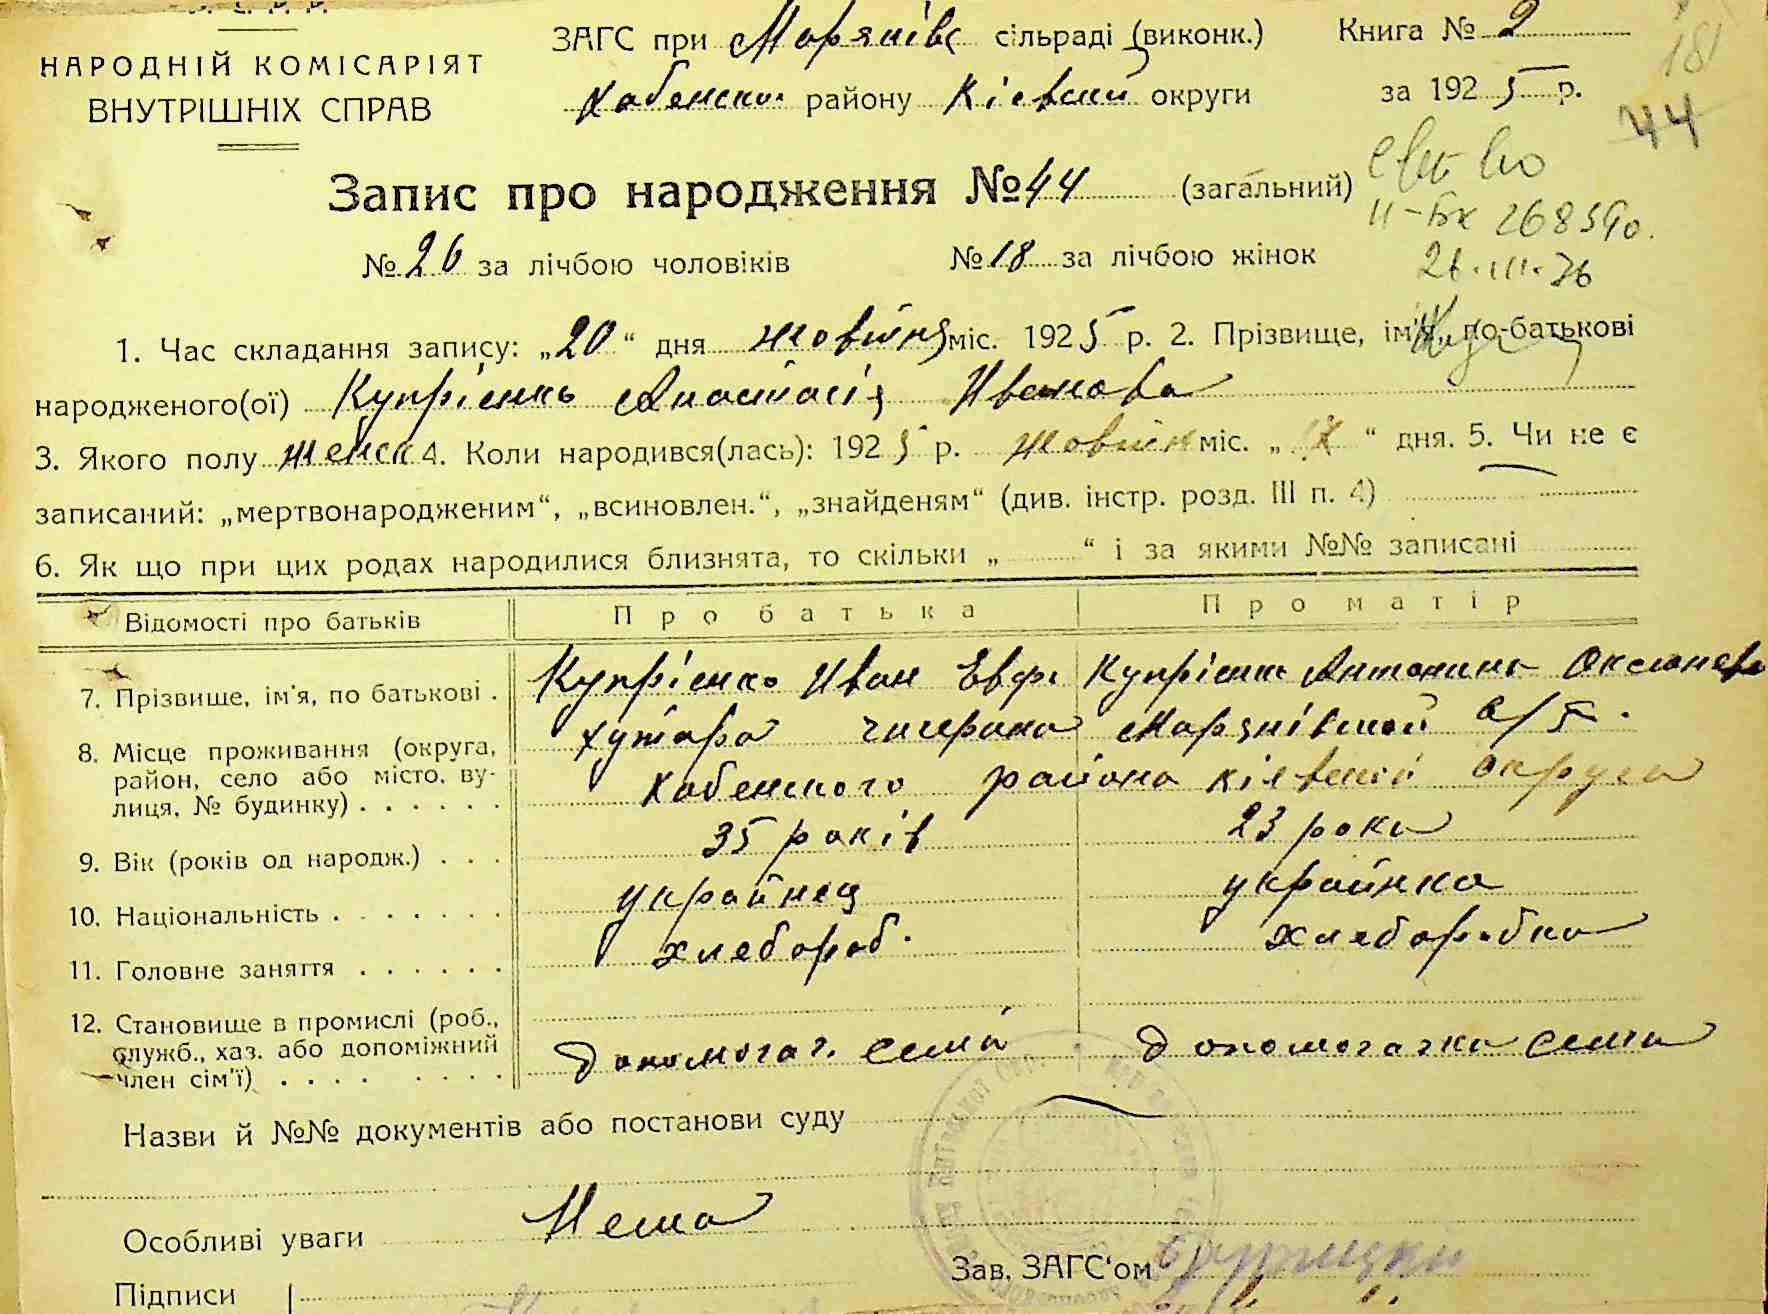 У. С. Р. Р.
НАРОДНІЙ КОМІСАРІЯТ
ВНУТРІШНІХ СПРАВ
ЗАГС при Марянівс сільраді (виконк.)
Хабенског району Кіевской округи
Книга № 2
за 1925 р.
181
44
Запис про народження № 44 (загальний)
№ 26 за лічбою чоловіків № 18 за лічбою жінок
II-БК 268390.
26.III.76
1. Час складання запису: „20“ дня жовтня міс. 1925 р. 2. Прізвище, ім'я, по-батькові
народженого(ої) Купрієнко Анастасія Иванова
3. Якого полу женск 4. Коли народився(лась): 1925 р. жовтня міс. „ “ дня. 5. Чи не є
записаний: „мертвонародженим“, „всиновлен.“, „знайденям“ (див. інстр. розд. III п. 4)
6. Як що при цих родах народилися близнята, то скільки „ “ і за якими №№ записані
Відомості про батьків Про батька Про матір
7. Прізвище, ім'я, по батькові . Купрієнко Иван Евф. Купрієнко Антонина
8. Місце проживання (округа, район, село або місто, вулиця, № будинку) . . . . . . хутора Марянівской с/Р.
Хабенского района Кіевской округи
9. Вік (років од народж.) . . . 35 років 23 роки
10. Національність . . . . . . . украйнец украйнка
11. Головне заняття . . . . . . хлебороб. хлеборобка
12. Становище в промислі (роб., служб., хаз. або допоміжний член сім'ї) . . . . . . . . . допомогач. семи допомогачка семи
Назви й №№ документів або постанови суду
Особливі уваги Нема
Зав. ЗАГС'ом
Підписи